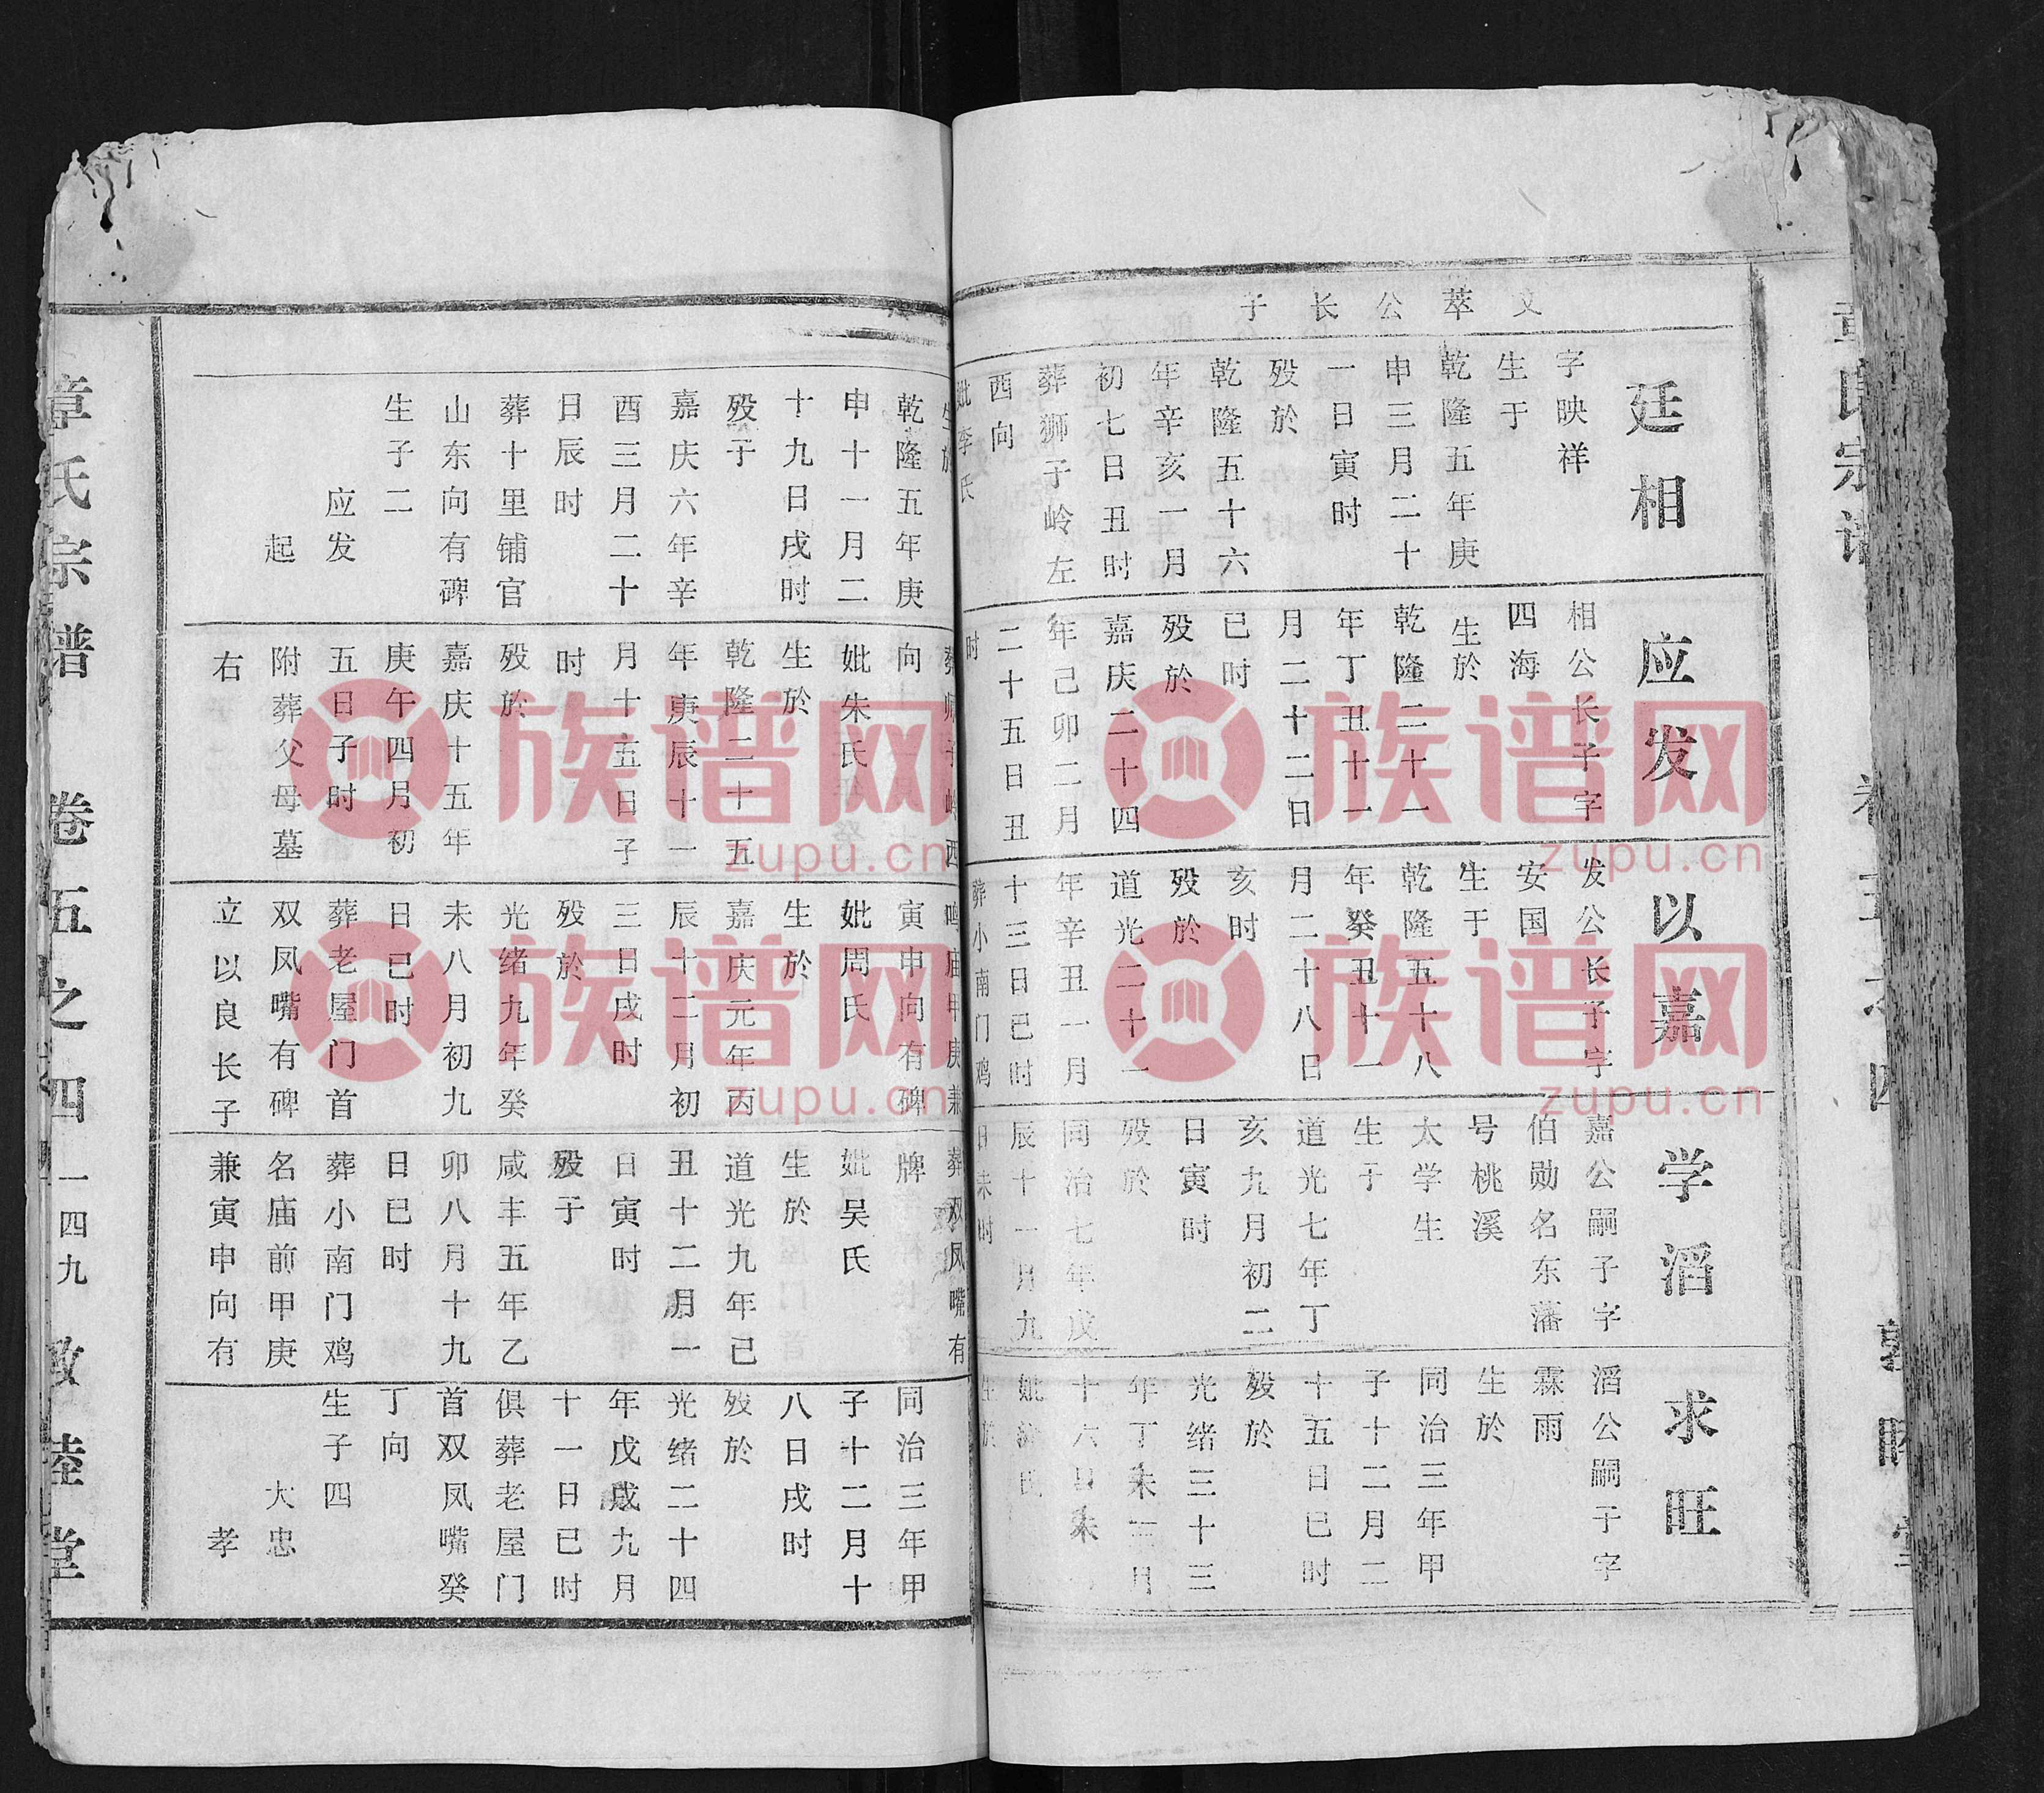 文萃公长子
廷相
字映祥
生于
乾隆五年庚
申三月二十
一日寅时
殁於
乾隆五十六
年辛亥一月
初七日丑时
葬狮子岭左
西向
妣李氏
应发
相公长子字
四海
生於
乾隆二十一
年丁丑十一
月二十二日
巳时
殁於
嘉庆二十四
年己卯二月
二十五日丑
时
以嘉
发公长子字
安国
生于
乾隆五十八
年癸丑十一
月二十八日
亥时
殁於
道光二十一
年辛丑一月
十三日巳时
葬小南门鸡
学滔
嘉公嗣子字
伯勋名东藩
号桃溪
太学生
生于
道光七年丁
亥九月初二
日寅时
殁於
同治七年戊
辰十一月九
日未时
求旺
滔公嗣子字
霖雨
生於
同治三年甲
子十二月二
十五日巳时
殁於
光绪三十三
年丁未二月
十六日未
生於
生於
乾隆五年庚
申十一月二
十九日戌时
殁于
嘉庆六年辛
酉三月二十
日辰时
葬十里铺官
山东向有碑
生子二
应发
起
葬狮子岭西
向
妣朱氏
生於
乾隆二十五
年庚辰十一
月十五日子
时
殁於
嘉庆十五年
庚午四月初
五日子时
附葬父母墓
右
鸣庙甲庚兼
寅申向有碑
妣周氏
生於
嘉庆元年丙
辰十二月初
三日戌时
殁於
光绪九年癸
未八月初九
日巳时
葬老屋门首
双凤嘴有碑
立以良长子
葬双凤嘴有
牌
妣吴氏
生於
道光九年己
丑十二月一
日寅时
殁于
咸丰五年乙
卯八月十九
日巳时
葬小南门鸡
名庙前甲庚
兼寅申向有
同治三年甲
子十二月十
八日戌时
殁於
光绪二十四
年戊戌九月
十一日巳时
俱葬老屋门
首双凤嘴癸
丁向
生子四
大忠
孝
章氏宗谱 卷五之四 一四九 敦睦堂
族谱网
zupu.cn
族谱网
zupu.cn
族谱网
zupu.cn
族谱网
zupu.cn